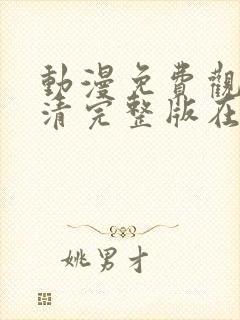 動漫免費觀
清完整版在
姚男才